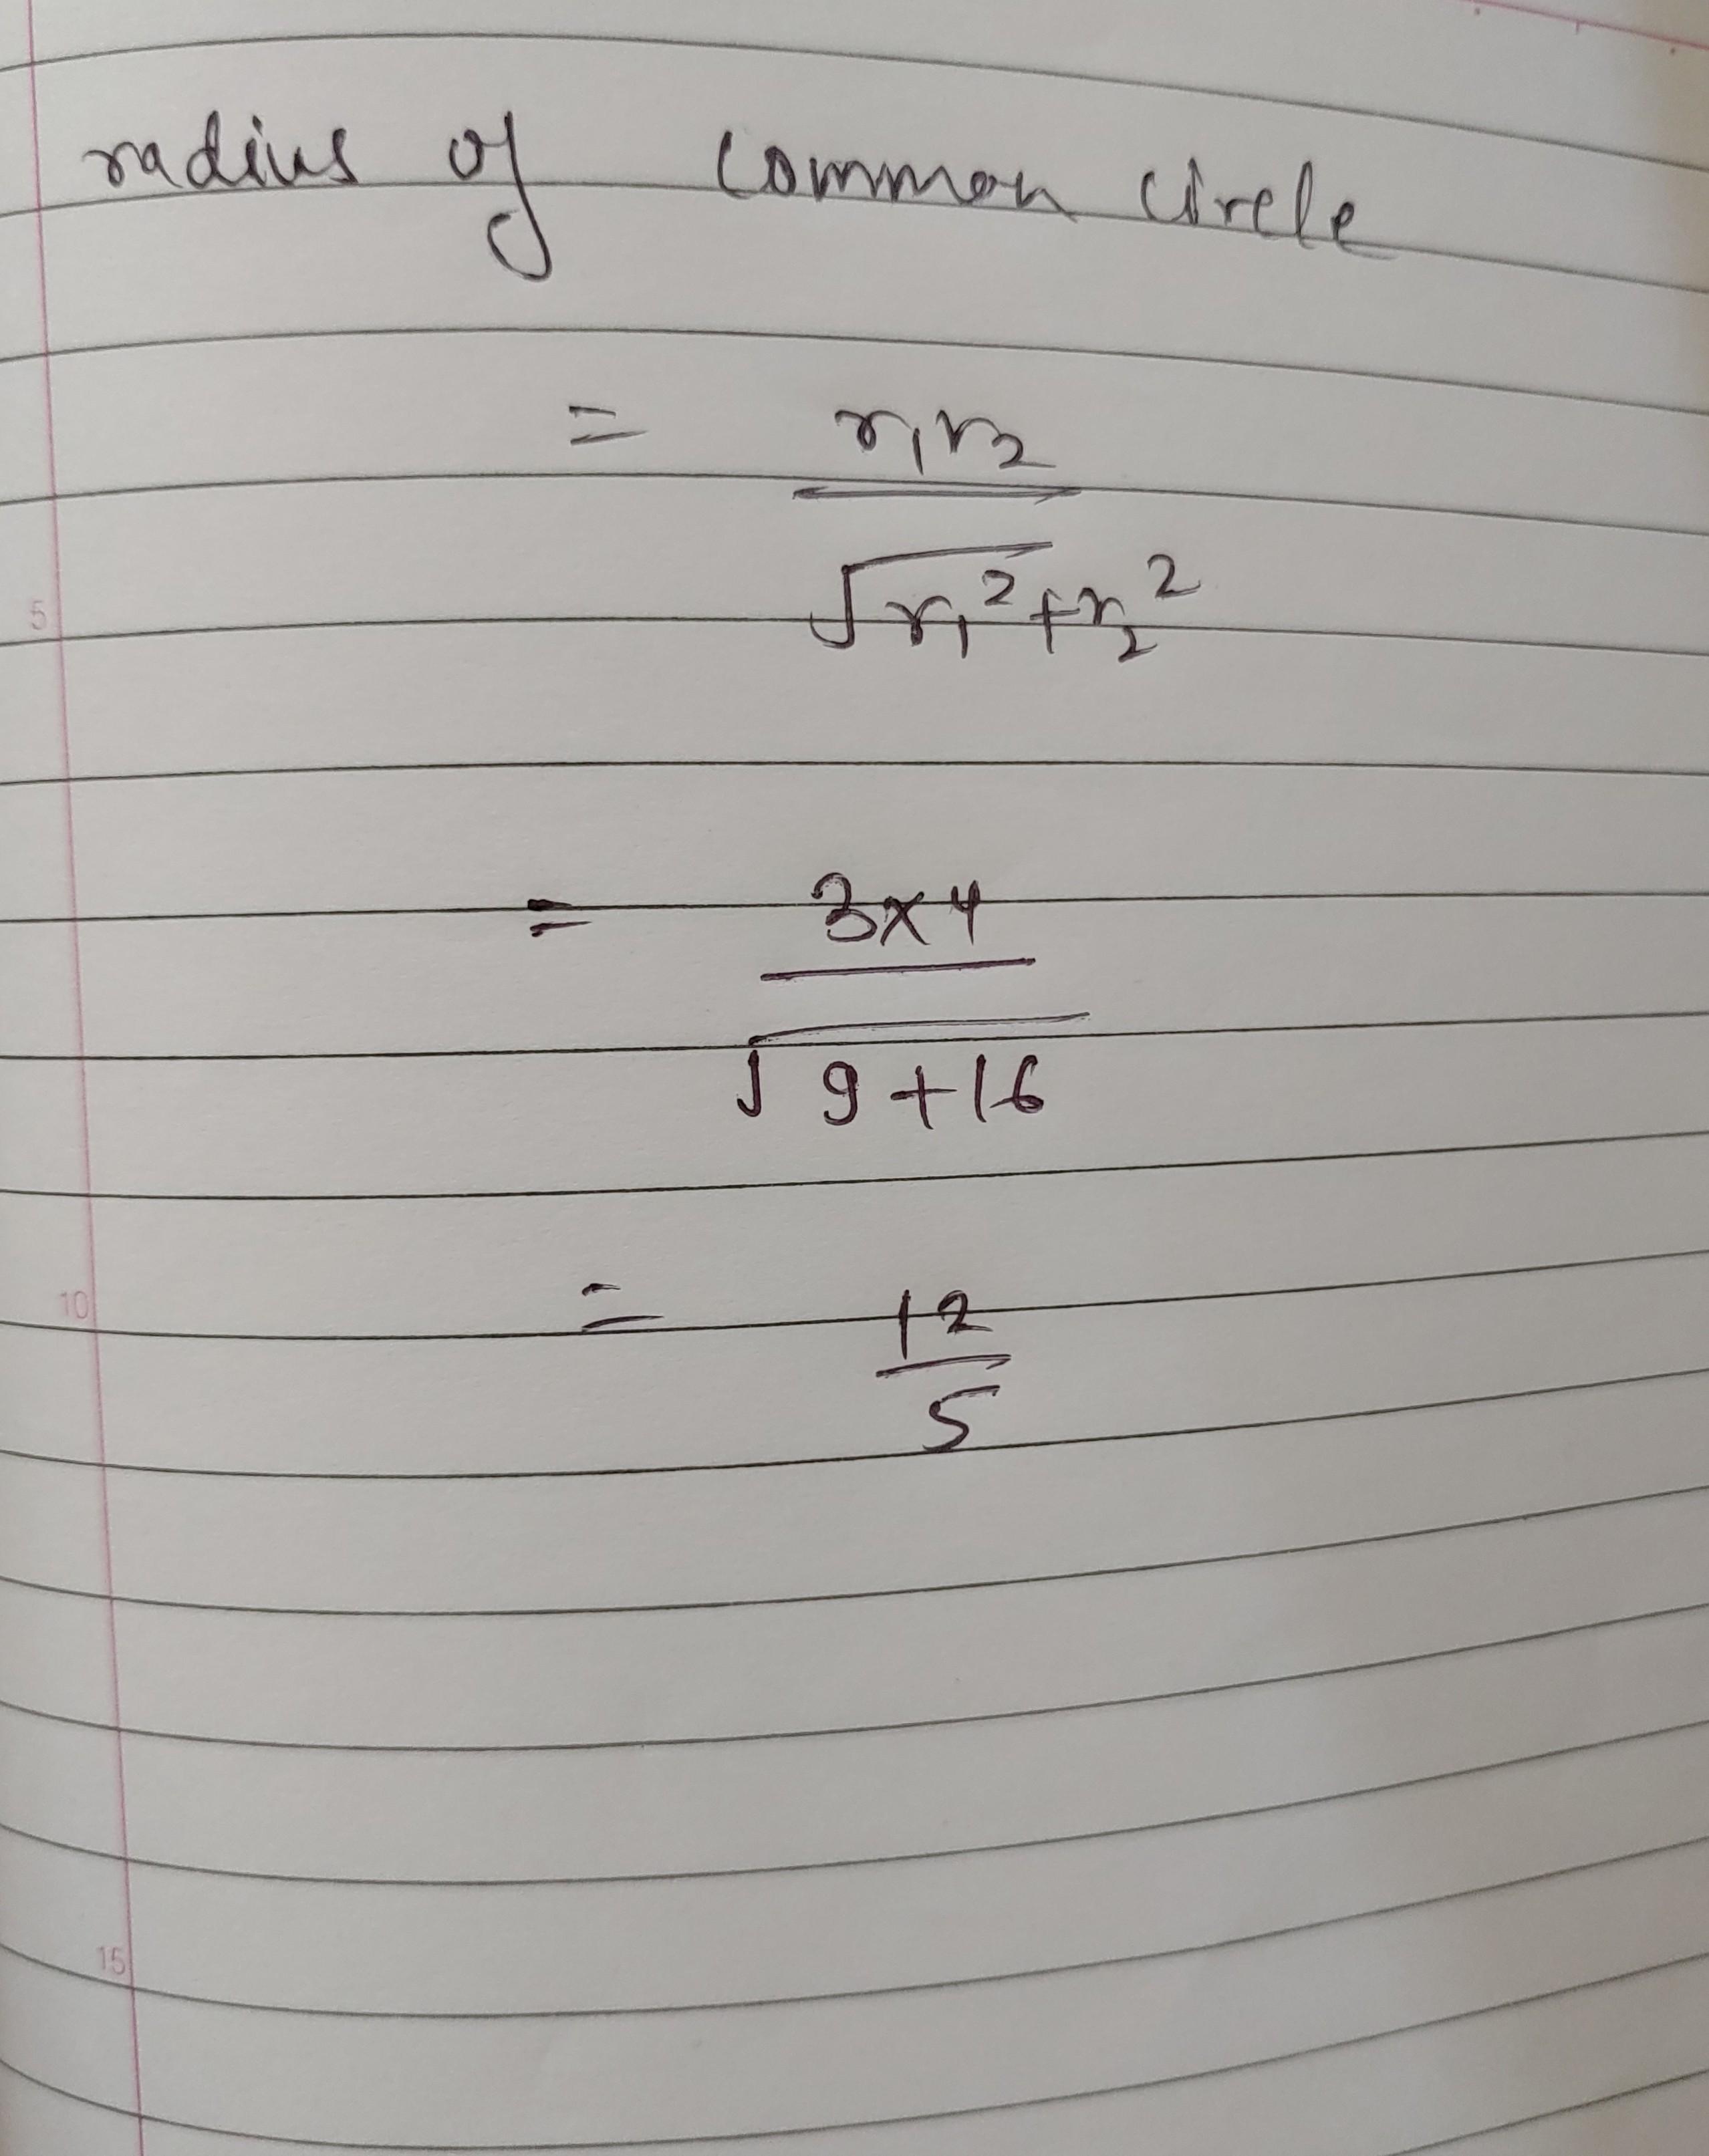 radius of common circle
= r₁r₂
√r₁² + r₂²
= 3x4
√9+16
5
= 12
5
10
15